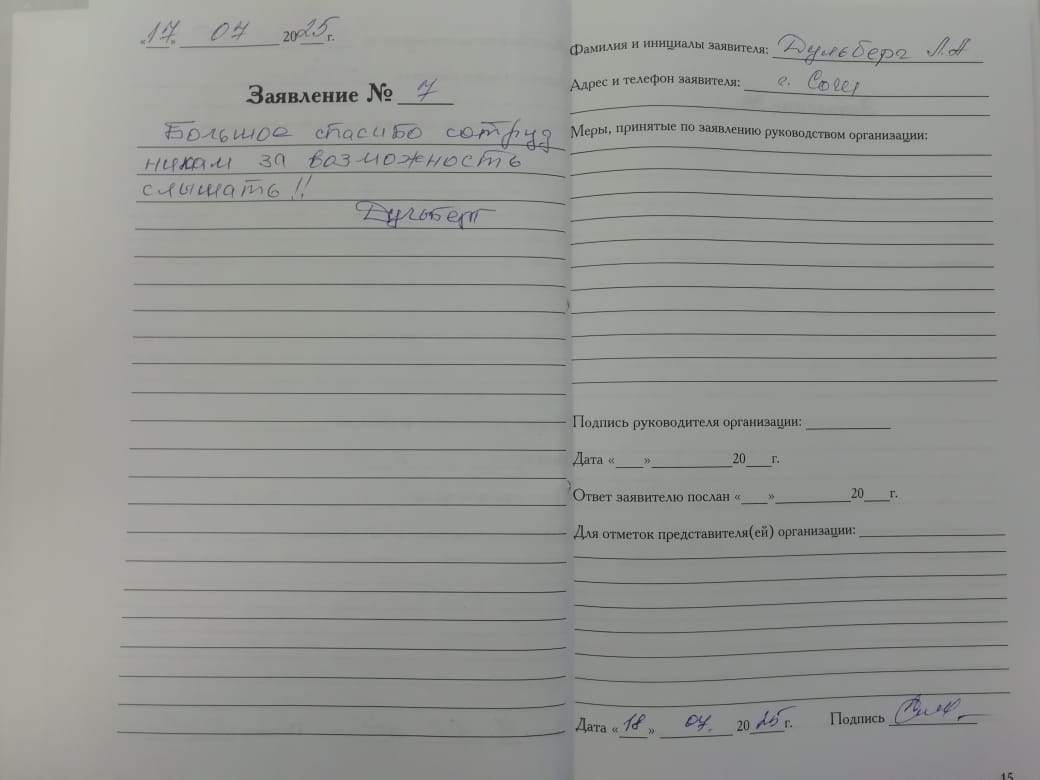 «17» 07 2025 г.
Заявление № 7
Большое спасибо сотруд
никам за возможность
слышать!!
Дульберг
Фамилия и инициалы заявителя: Дульберг Л.А
Адрес и телефон заявителя: г. Сочи
Меры, принятые по заявлению руководством организации:
Подпись руководителя организации:
Дата «___»__________20___г.
Ответ заявителю послан «___»__________20___г.
Для отметок представителя(ей) организации:
Дата «18» 07. 2025 г. Подпись
15